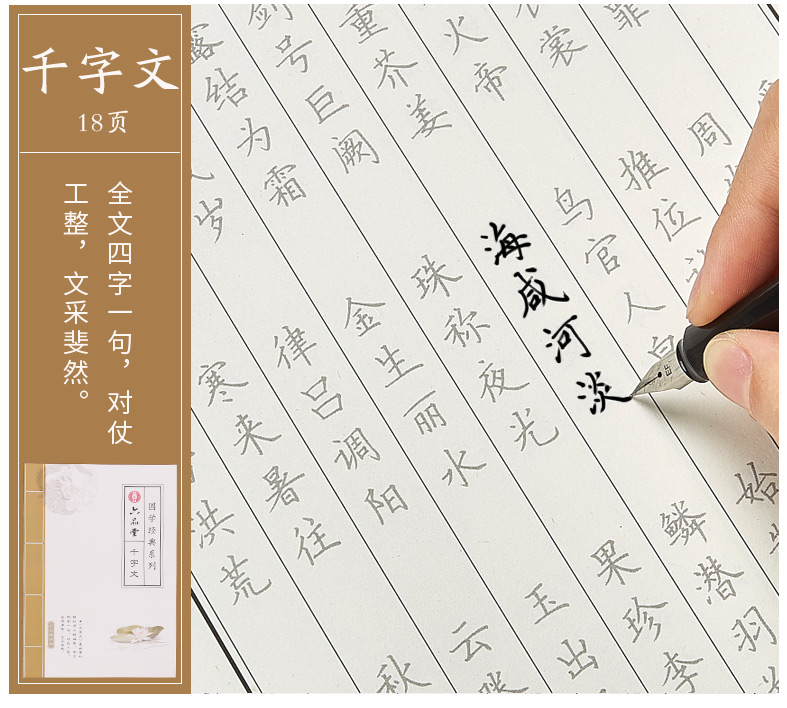 千字文
18页
全文四字一句，对仗
工整，文采斐然。
国学经典系列
六品堂
千字文
罪 周
裳 推位
火帝 鸟官人 始
重芥姜 海咸河淡 鳞潜羽
剑号巨阙 珠称夜光 果珍李
露结为霜 金生丽水 玉出
岁 律吕调阳 云
寒来暑往 秋
洪荒